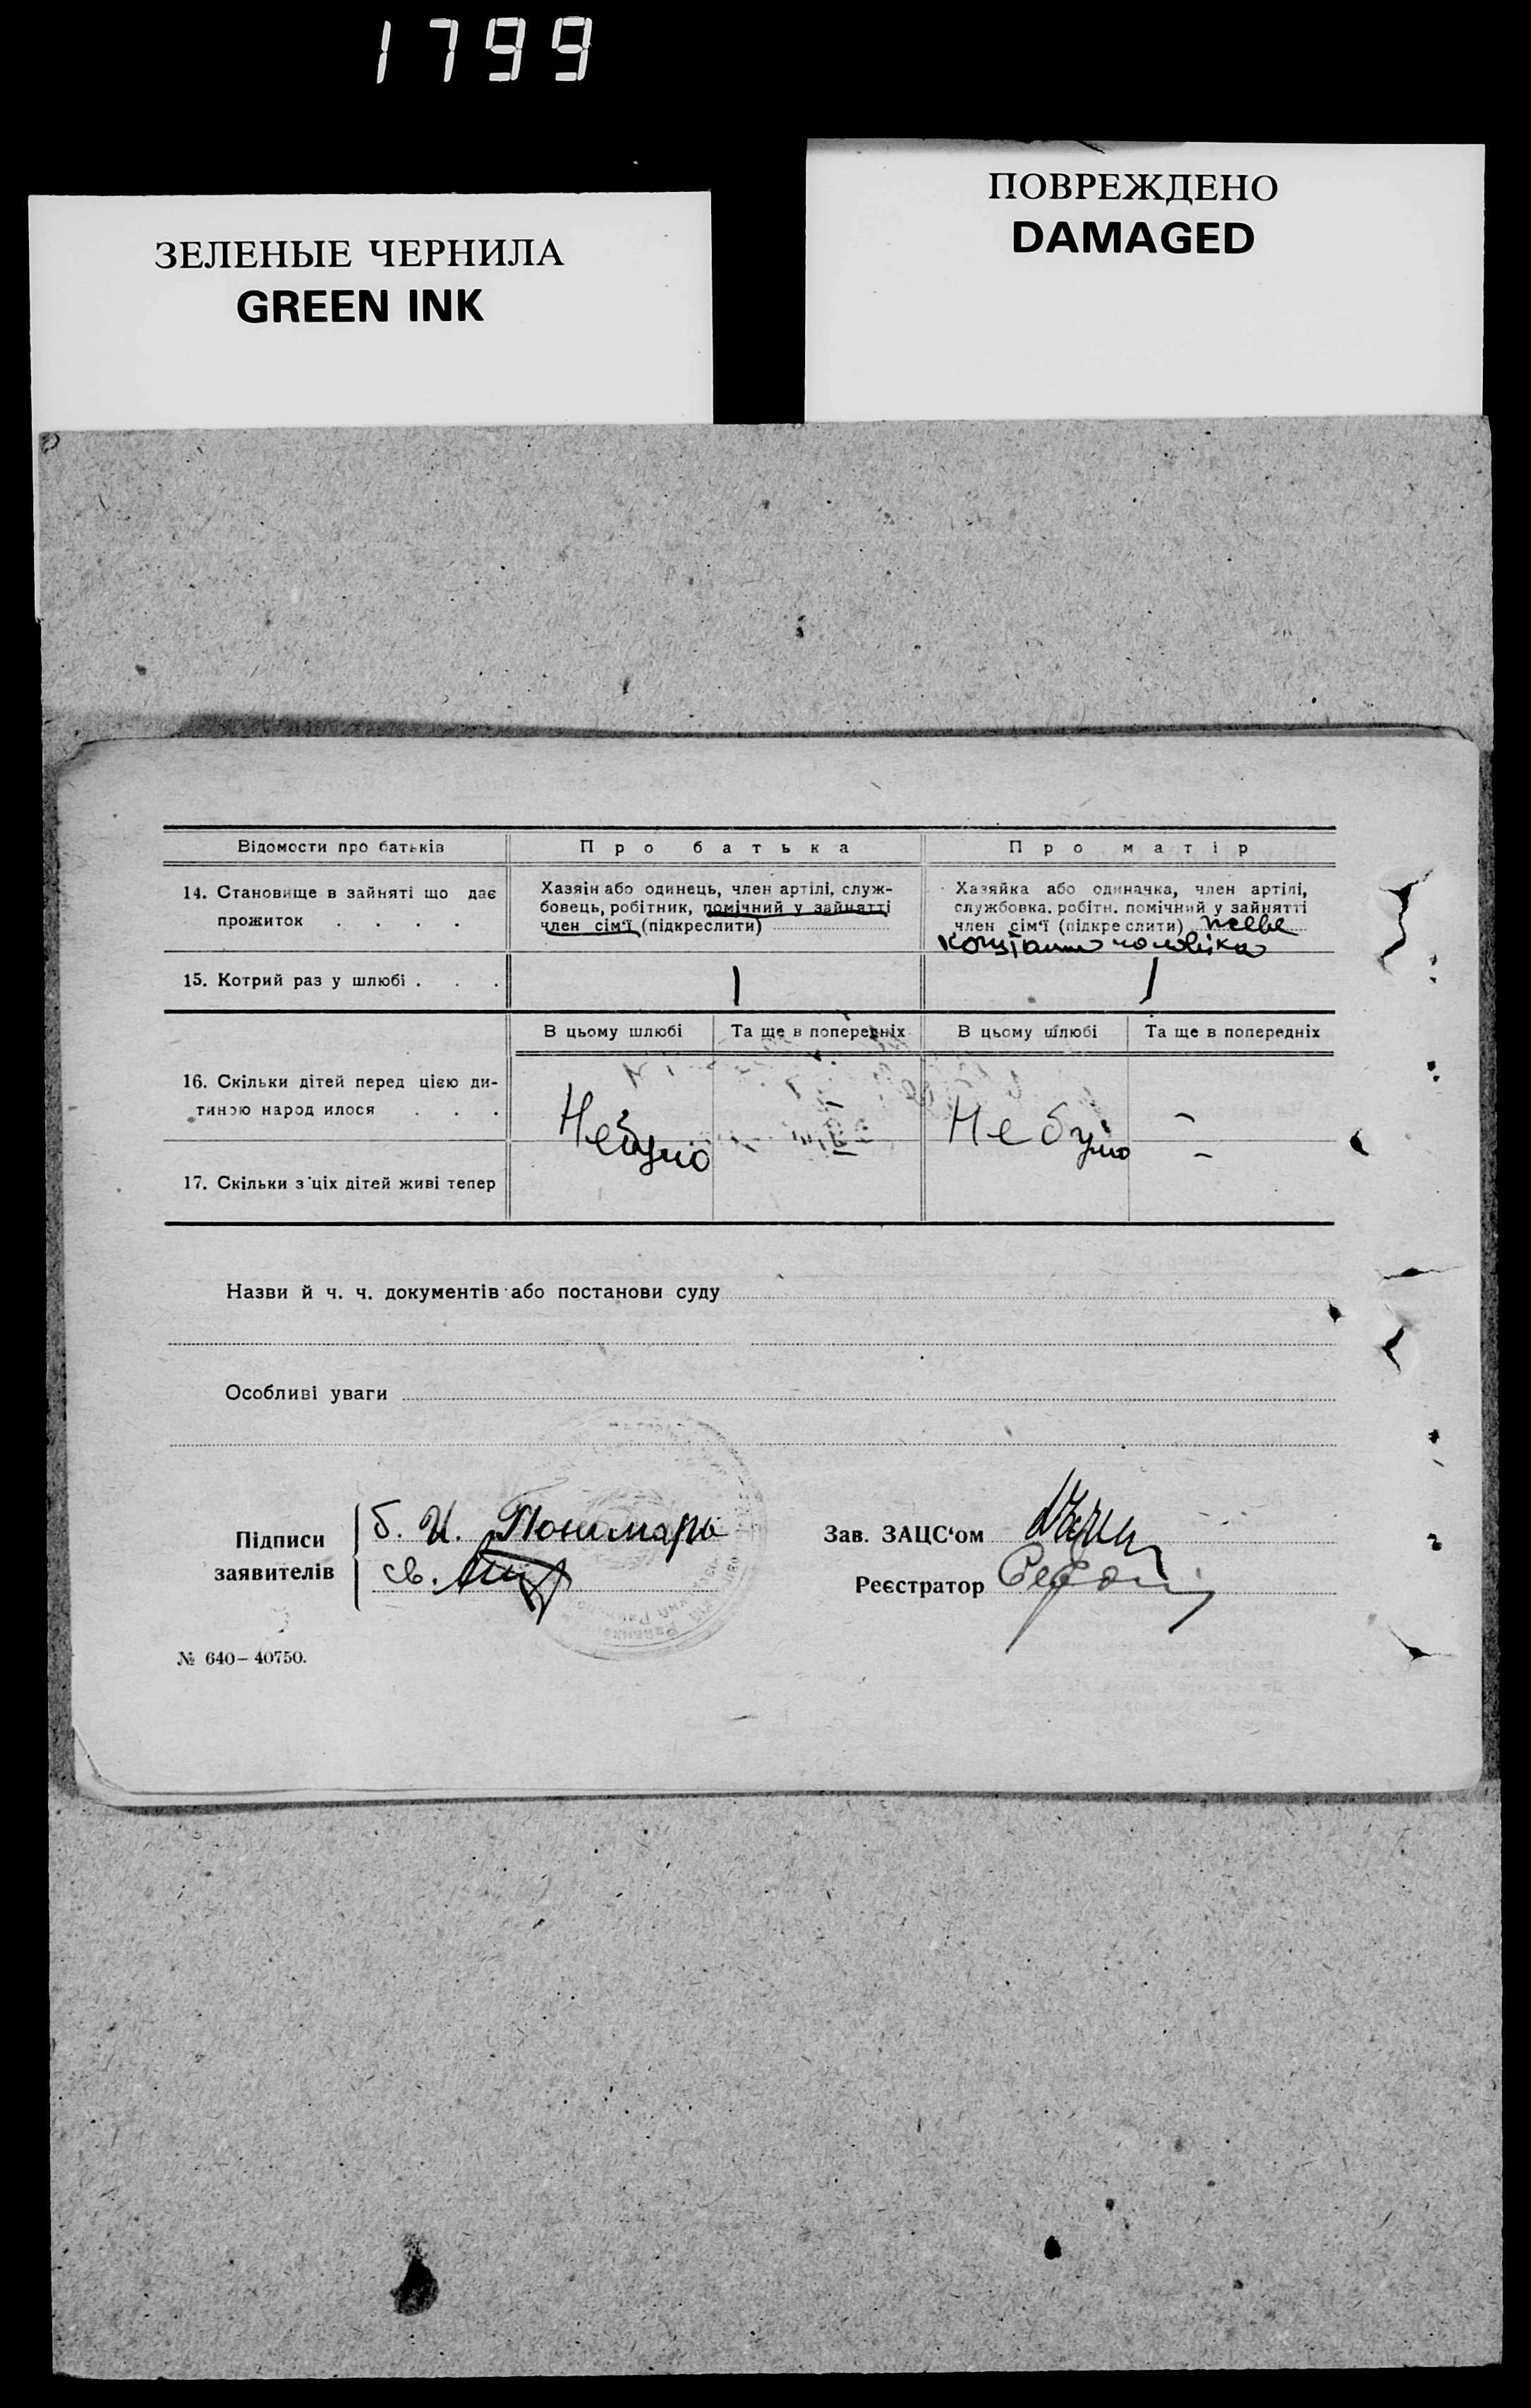 1799
ЗЕЛЕНЫЕ ЧЕРНИЛА
GREEN INK
ПОВРЕЖДЕНО
DAMAGED
Відомости про батьків
Про батька
Про матір
14. Становище в зайняті що дає
прожиток . . . .
Хазяін або одинець, член артілі, служ-
бовець, робітник, помічний у зайнятті
член сім'ї (підкреслити)
Хазяйка або одиначка, член артілі,
службовка, робітн. помічний у зайнятті
член сім'ї (підкреслити) живе
коштом чоловіка
15. Котрий раз у шлюбі . . .
1
1
В цьому шлюбі
Та ще в попередніх
В цьому шлюбі
Та ще в попередніх
16. Скільки дітей перед цією ди-
тиною народилося . . .
Не було
Не було
–
–
17. Скільки з ціх дітей живі тепер
Назви й ч. ч. документів або постанови суду
Особливі уваги
Підписи
заявителів
б. И. Пономарь
св.
Зав. ЗАЦС'ом
Реєстратор
№ 640–40750.